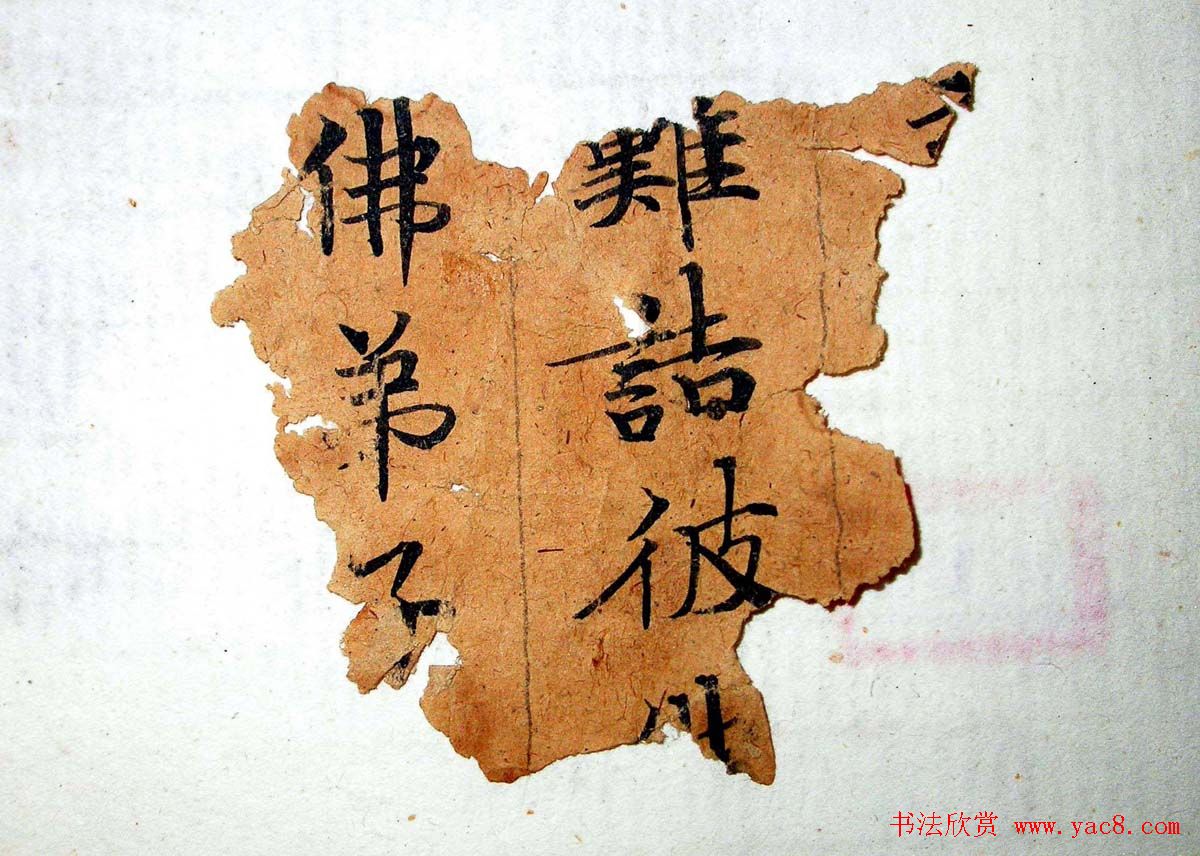 難詰彼
佛弟子
书法欣赏 www.yac8.com